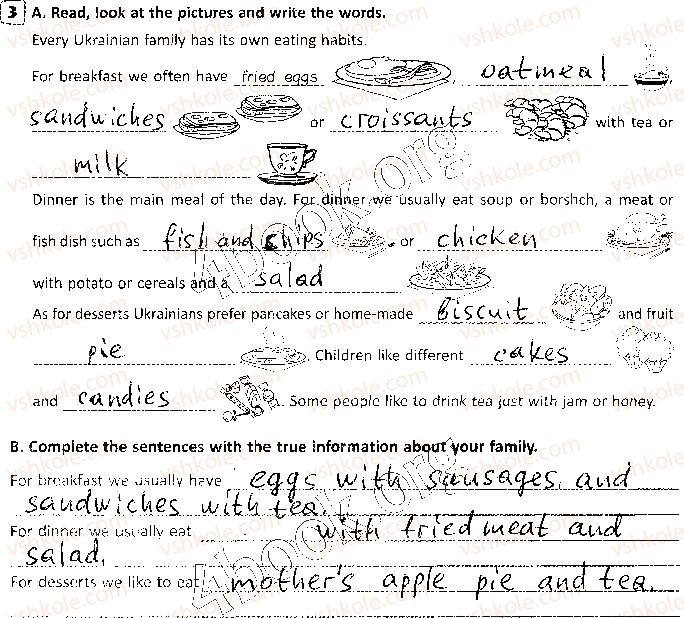 3 A. Read, look at the pictures and write the words.
Every Ukrainian family has its own eating habits.
For breakfast we often have fried eggs, oatmeal,
sandwiches or croissants with tea or
milk.
Dinner is the main meal of the day. For dinner we usually eat soup or borshch, a meat or
fish dish such as fish and chips or chicken
with potato or cereals and a salad.
As for desserts Ukrainians prefer pancakes or home-made biscuit and fruit
pie. Children like different cakes
and candies. Some people like to drink tea just with jam or honey.
B. Complete the sentences with the true information about your family.
For breakfast we usually have eggs with sausages and
sandwiches with tea.
For dinner we usually eat with fried meat and
salad.
For desserts we like to eat mother's apple pie and tea.
vshkole.com
4book.org